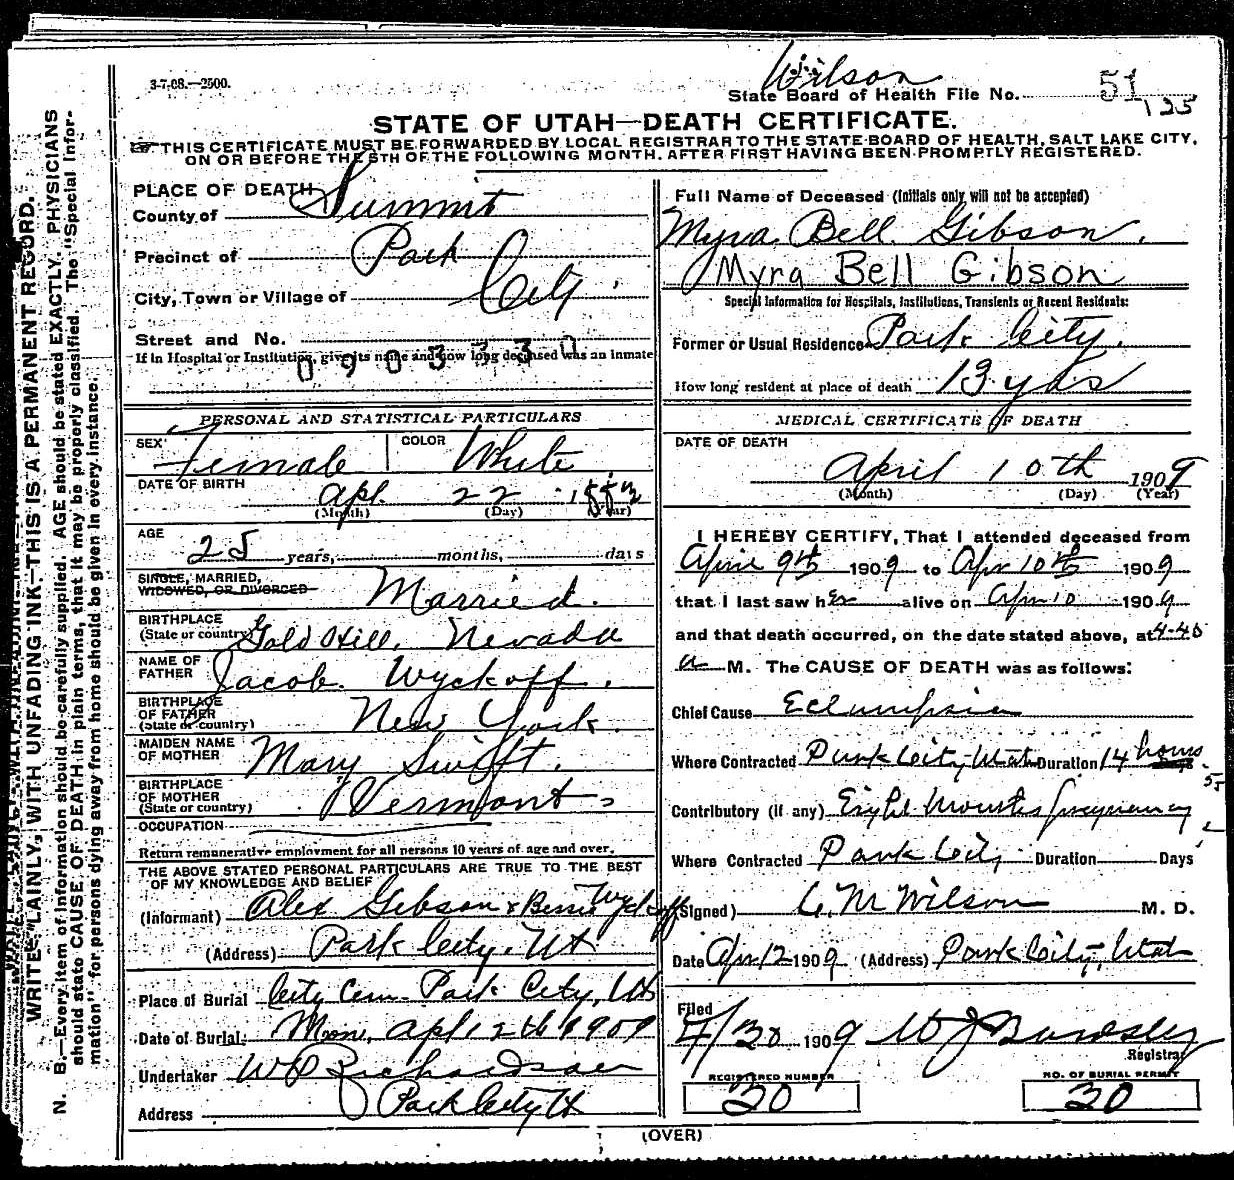 Wilson
3-7-08.—2500.
State Board of Health File No. 51
125
STATE OF UTAH—DEATH CERTIFICATE.
THIS CERTIFICATE MUST BE FORWARDED BY LOCAL REGISTRAR TO THE STATE BOARD OF HEALTH, SALT LAKE CITY,
ON OR BEFORE THE 5TH OF THE FOLLOWING MONTH, AFTER FIRST HAVING BEEN PROMPTLY REGISTERED.
WRITE PLAINLY, WITH UNFADING INK—THIS IS A PERMANENT RECORD.
N. B.—Every item of information should be carefully supplied. AGE should be stated EXACTLY. PHYSICIANS
should state CAUSE OF DEATH in plain terms, that it may be properly classified. The "Special Infor-
mation" for persons dying away from home should be given in every instance.
PLACE OF DEATH
County of Summit
Precinct of Park
City, Town or Village of City.
Street and No.
If in Hospital or Institution, give its name and how long deceased was an inmate
PERSONAL AND STATISTICAL PARTICULARS
SEX Female COLOR White
DATE OF BIRTH Apl. 22 188
(Month) (Day) (Year)
AGE 25 years, months, days
SINGLE, MARRIED,
WIDOWED, OR DIVORCED Married.
BIRTHPLACE
(State or country) Gold Hill, Nevada
NAME OF
FATHER Jacob Wyckoff.
BIRTHPLACE
OF FATHER
(State or country) New York.
MAIDEN NAME
OF MOTHER Mary Swift.
BIRTHPLACE
OF MOTHER
(State or country) Vermont
OCCUPATION
Return remunerative employment for all persons 10 years of age and over.
THE ABOVE STATED PERSONAL PARTICULARS ARE TRUE TO THE BEST
OF MY KNOWLEDGE AND BELIEF
(Informant) Alex Gibson & Wyckoff
(Address) Park City, Ut
Place of Burial City Cem. Park City, Ut
Date of Burial Mon. Apl 12th 1909
Undertaker W P Richardson
Address Park City Ut
Full Name of Deceased (Initials only will not be accepted)
Myra Bell Gibson.
Myra Bell Gibson
Special Information for Hospitals, Institutions, Transients or Recent Residents:
Former or Usual Residence Park City.
How long resident at place of death 13 yrs
MEDICAL CERTIFICATE OF DEATH
DATE OF DEATH
April 10th 1909
(Month) (Day) (Year)
I HEREBY CERTIFY, That I attended deceased from
April 9th 1909 to Apr 10th 1909
that I last saw her alive on Apr 10 1909
and that death occurred, on the date stated above, at 4-40
a M. The CAUSE OF DEATH was as follows:
Chief Cause Eclampsia
Where Contracted Park City, Utah Duration 14 hours
Contributory (if any) Eight Months pregnancy
Where Contracted Park City Duration Days
(Signed) C. M Wilson M. D.
Date Apr 12 1909 (Address) Park City, Utah
Filed
4/30 1909 W J
Registrar
REGISTERED NUMBER
20
NO. OF BURIAL PERMIT
20
(OVER)